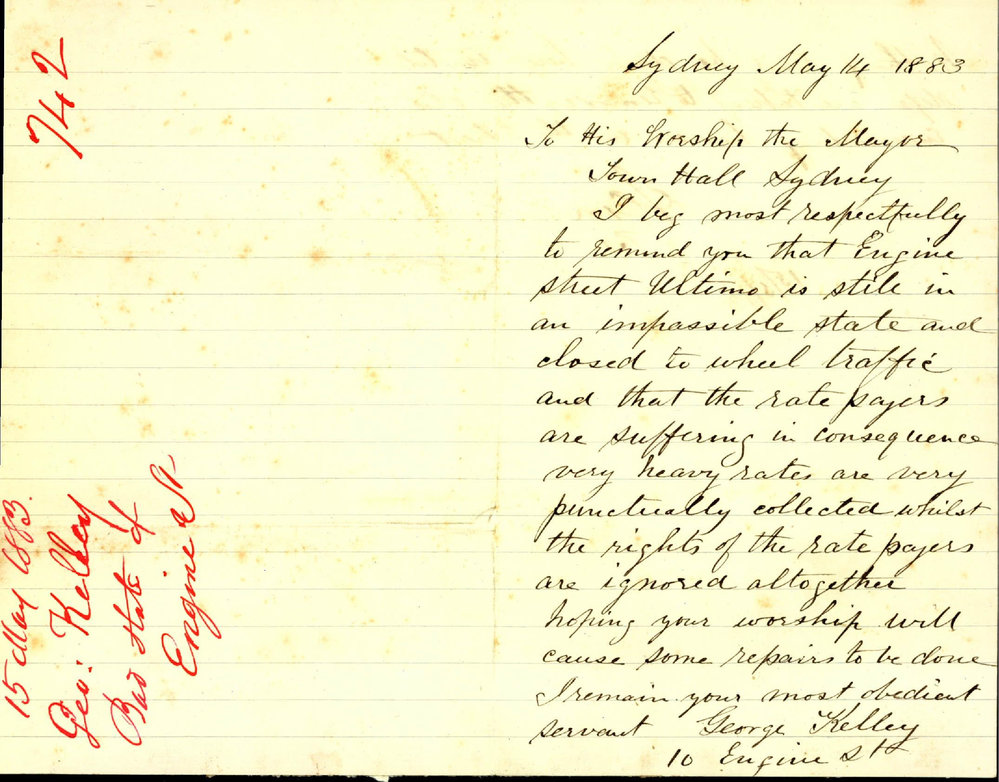 742
15 May 1883.
Geo: Kelley
Bad State of
Engine St
Sydney May 14 1883
To His Worship the Mayor
Town Hall Sydney
I beg most respectfully
to remind you that Engine
street Ultimo is still in
an impassible state and
closed to wheel traffic
and that the rate payers
are suffering in consequence
very heavy rates are very
punctually collected whilst
the rights of the rate payers
are ignored altogether
hoping your worship will
cause some repairs to be done
I remain your most obedient
servant George Kelley
10 Engine St